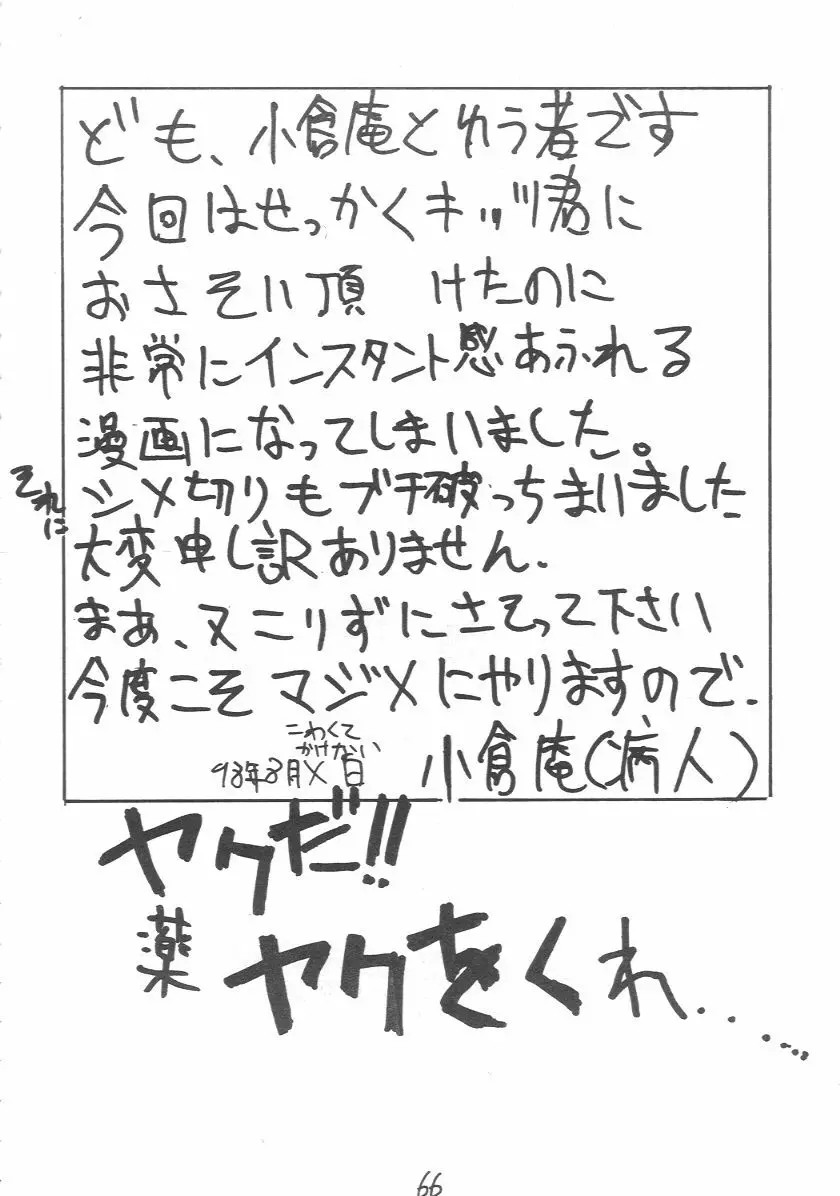 ども、小倉庵とゆう者です
今回はせっかくキッヅ君に
おさそい頂 けたのに
非常にインスタント感あふれる
漫画になってしまいました。
それに
シメ切りもブチ破っちまいました
大変申し訳ありません.
まあ、又こりずにさそって下さい
今度こそマジメにやりますので.
こわくて
かけない
93年8月X日
小倉庵(病人)
ヤクだ!!
薬
ヤクをくれ........
66